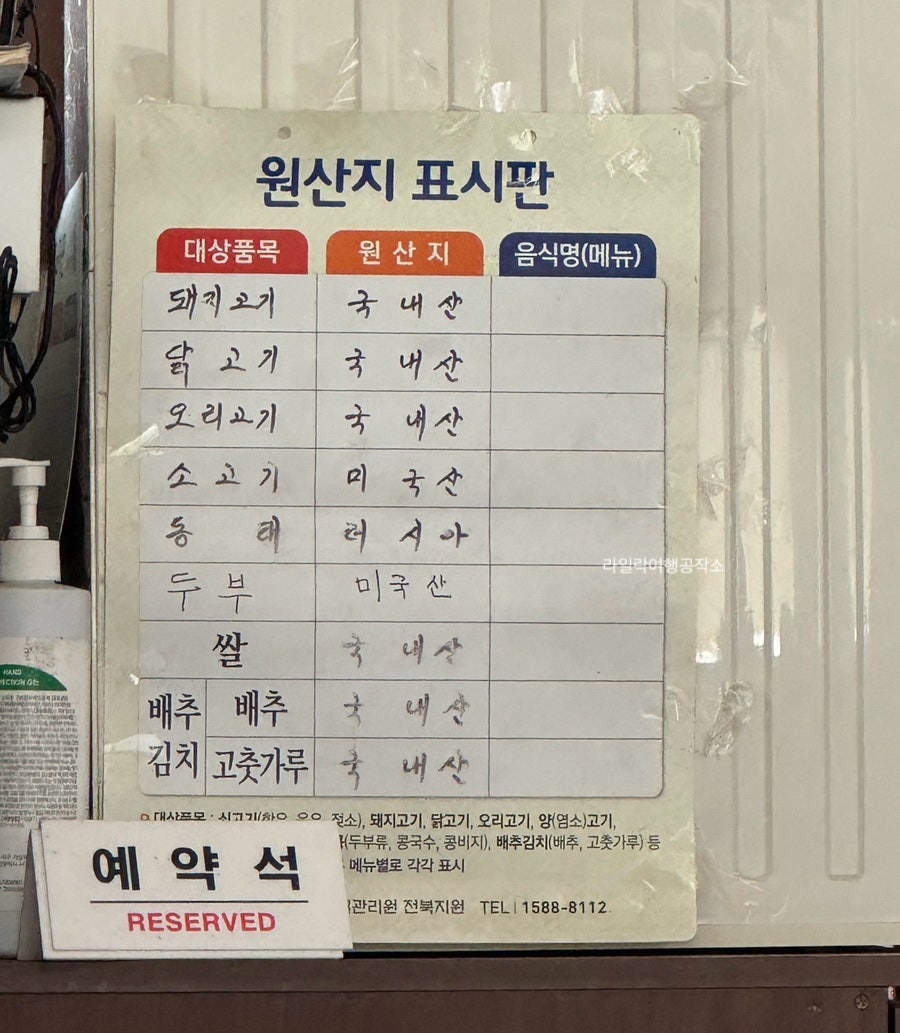 원산지 표시판
대상품목 원산지 음식명(메뉴)
돼지고기 국내산
닭고기 국내산
오리고기 국내산
소고기 미국산
동태 러시아
두부 미국산
쌀 국내산
배추김치 배추 국내산
고춧가루 국내산
대상품목 : 쇠고기(한우, 육우, 젖소), 돼지고기, 닭고기, 오리고기, 양(염소)고기,
(두부류, 콩국수, 콩비지), 배추김치(배추, 고춧가루) 등
메뉴별로 각각 표시
관리원 전북지원 TEL | 1588-8112
예약석
RESERVED
라일락여행공작소